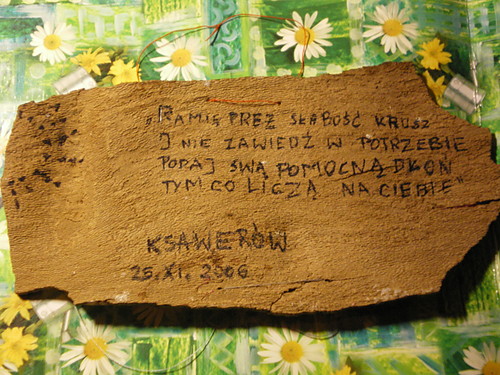 „RAMIĘ PRĘŻ SŁABOŚĆ KRUSZ
I NIE ZAWIEDŹ W POTRZEBIE
PODAJ SWĄ POMOCNĄ DŁOŃ
TYM CO LICZĄ NA CIEBIE"
KSAWERÓW
25.XI.2006